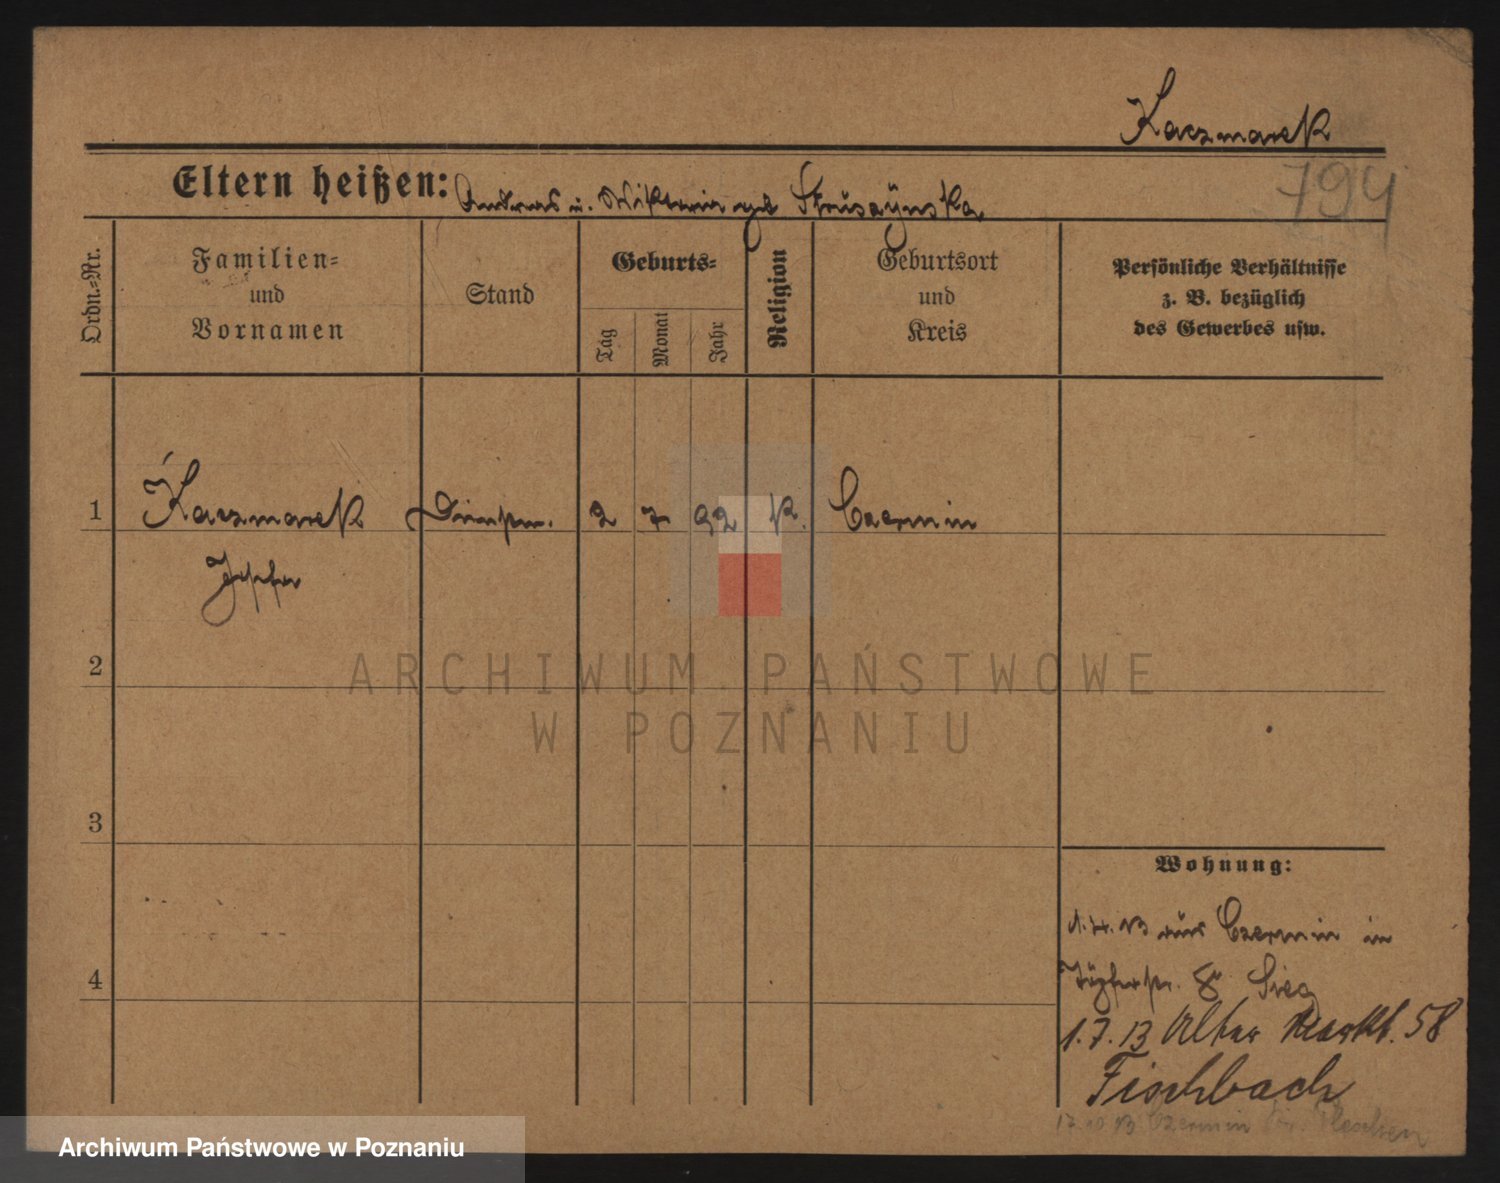 Kaczmarek
794
Eltern heißen: Andreas u. Wiktoria geb
Ordn.-Nr.
Familien-
und
Vornamen
Stand
Geburts-
Tag
Monat
Jahr
Religion
Geburtsort
und
Kreis
Persönliche Verhältnisse
z. B. bezüglich
des Gewerbes usw.
1 Kaczmarek 2 7 92 K. Czermin
2
3
4
Wohnung:
1.4.13 aus Czermin in
8 Sieg
1.7.13 Alter Markt. 58
Fischbach
17.10.13 Czermin Kr. Pleschen
ARCHIWUM PAŃSTWOWE
W POZNANIU
Archiwum Państwowe w Poznaniu